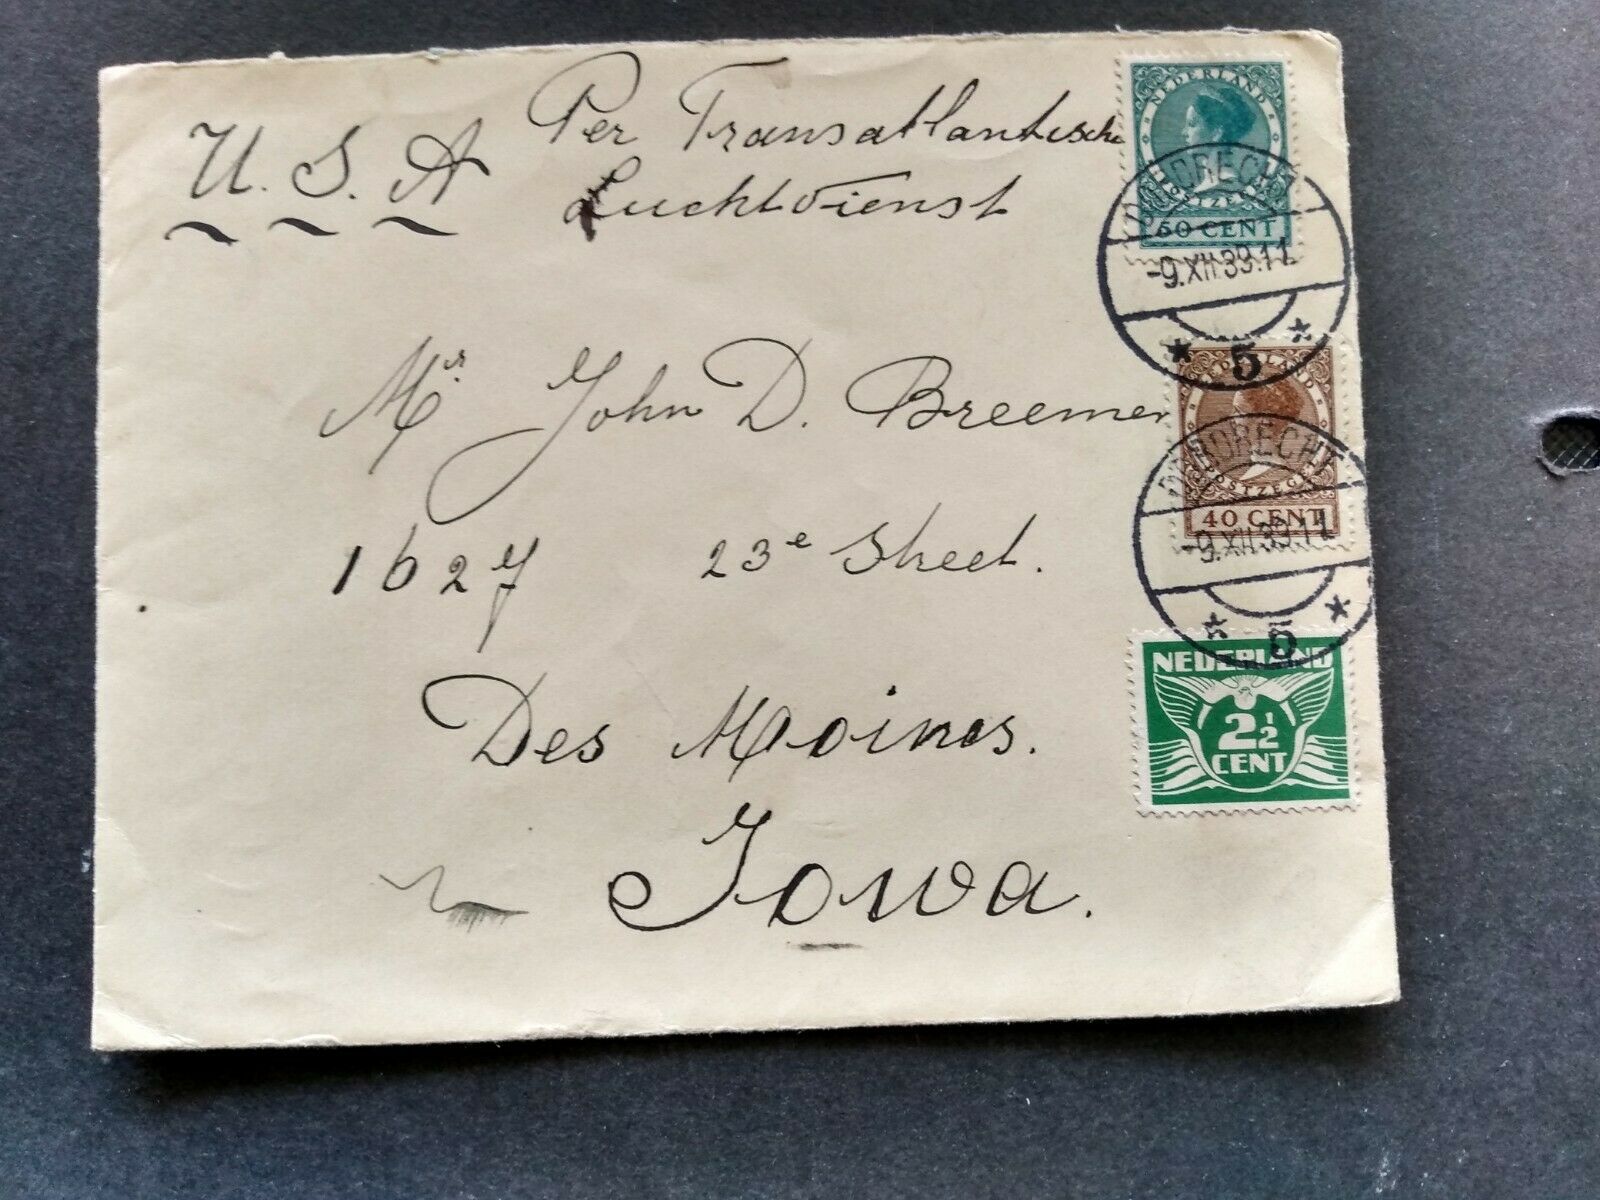 U. S. A
Per Transatlantische
Luchtdienst
Mr. John D. Breemer
1627 23e Street.
Des Moines.
Iowa.
NEDERLAND
POSTZEGEL
60 CENT
DORDRECHT
-9.XII.39.11
* 5 *
NEDERLAND
POSTZEGEL
40 CENT
DORDRECHT
-9.XII.39.11
* 5 *
NEDERLAND
2½
CENT